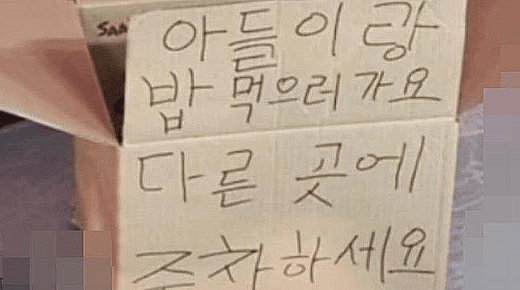 SAA
아들이랑
밥 먹으러 가요
다른 곳에
주차하세요